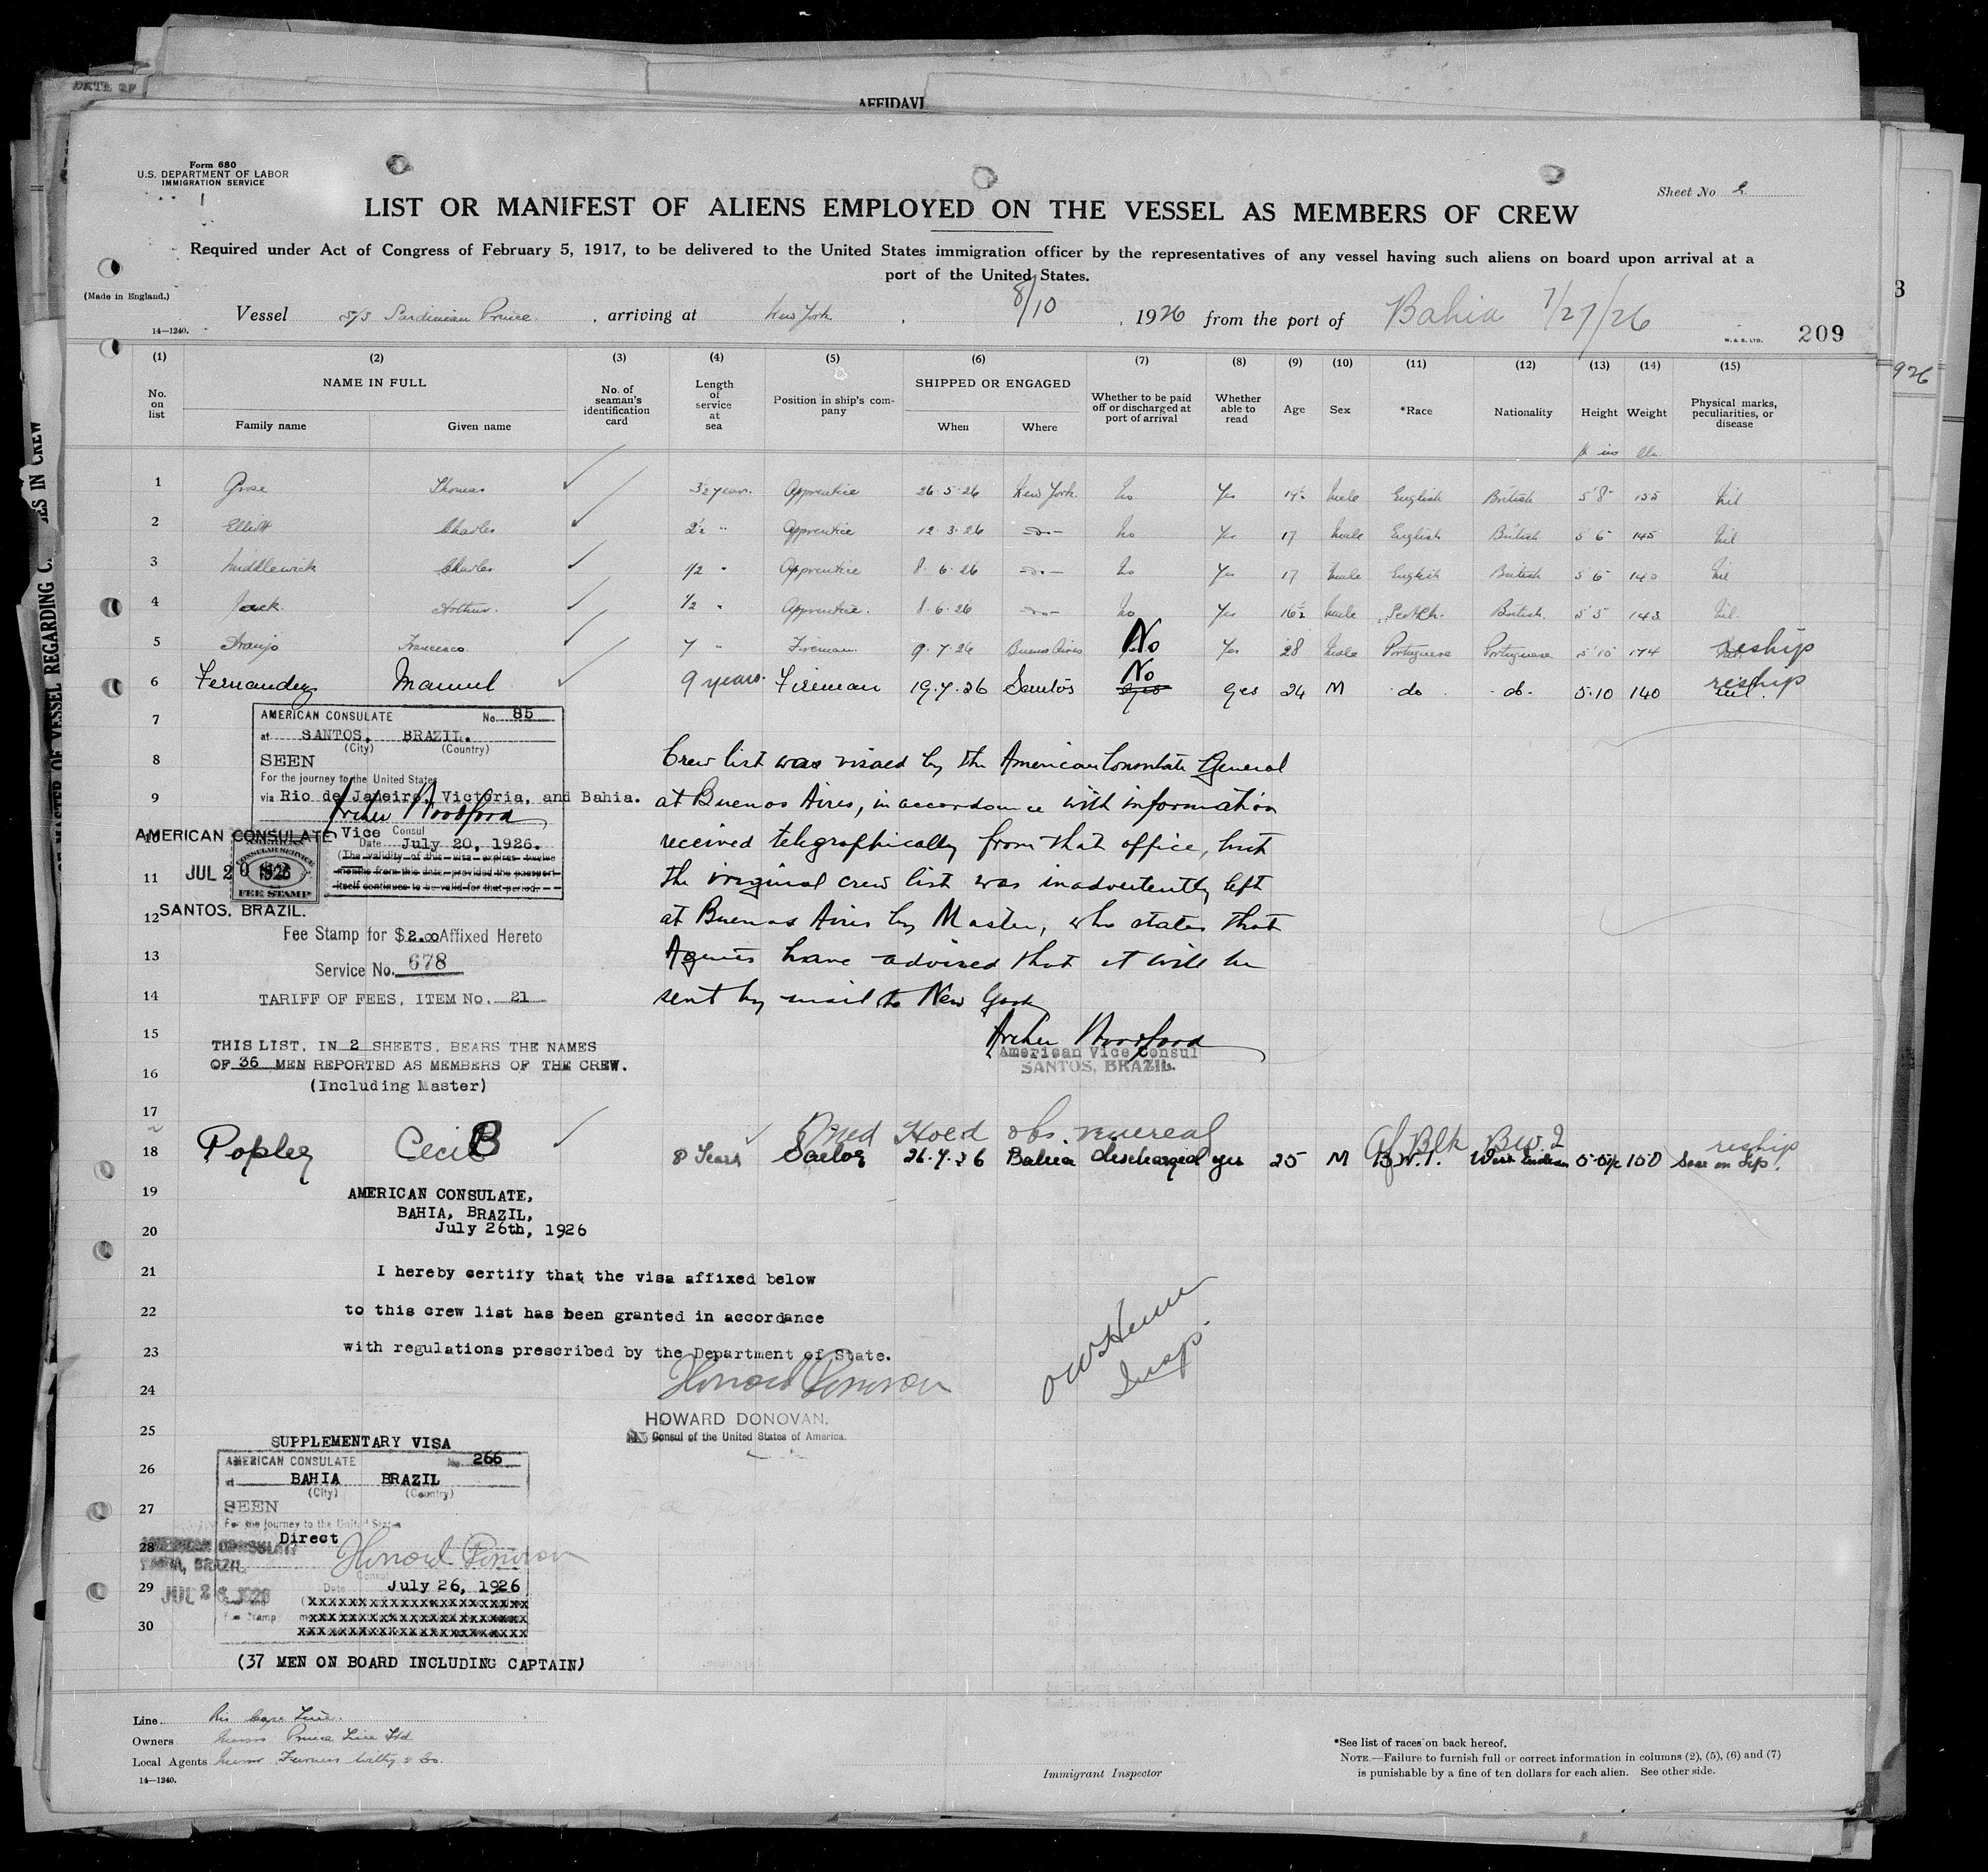 DATE OF
AFFIDAVI
Form 680
U.S. DEPARTMENT OF LABOR
IMMIGRATION SERVICE
Sheet No 2
LIST OR MANIFEST OF ALIENS EMPLOYED ON THE VESSEL AS MEMBERS OF CREW
Required under Act of Congress of February 5, 1917, to be delivered to the United States immigration officer by the representatives of any vessel having such aliens on board upon arrival at a
port of the United States.
(Made in England.)
Vessel S/S Sardinian Prince, arriving at New York, 8/10, 1926 from the port of Bahia 7/27/26
14—1240.
W. & S. LTD.
209
926
(1) (2) (3) (4) (5) (6) (7) (8) (9) (10) (11) (12) (13) (14) (15)
No. on list
NAME IN FULL
Family name Given name
No. of seaman's identification card
Length of service at sea
Position in ship's company
SHIPPED OR ENGAGED
When Where
Whether to be paid off or discharged at port of arrival
Whether able to read
Age Sex *Race Nationality Height Weight
Physical marks, peculiarities, or disease
1 Grose Thomas 3½ years. Apprentice 26·5·26 New York. No Yes 19½ Male English British 5'8" 155 Nil
2 Elliott Charles 2½ " Apprentice 12·3·26 —do— No Yes 17 Male English British 5 6 145 Nil
3 Middlewick Charles 1/2 " Apprentice 8·6·26 —do— No Yes 17 Male English British 5 6 140 Nil
4 Jack Arthur. 1/2 " Apprentice. 8·6·26 —do— No Yes 16½ Male Scotch. British. 5'5 143 Nil.
5 Araujo Francesco 7 " Fireman 9·7·26 Buenos Aires No Yes 28 Male Portuguese Portuguese 5'10 174 reship
6 Fernandez Manuel 9 years. Fireman 19.7.26 Santos No yes 24 M do. do. 5.10 140 reship
7
AMERICAN CONSULATE No. 85
at SANTOS, BRAZIL.
(City) (Country)
8
SEEN
For the journey to the United States
9
via Rio de Janeiro, Victoria, and Bahia.
Archer Woodford
Vice Consul
Date July 20, 1926.
(The validity of this visa expires twelve
months from this date, provided the passport
itself continues to be valid for that period.
10
AMERICAN CONSULATE
JUL 20 1926
SANTOS, BRAZIL.
AMERICAN
CONSULAR SERVICE
FEE STAMP
11
12
Fee Stamp for $2.00 Affixed Hereto
13
Service No. 678
14
TARIFF OF FEES, ITEM No. 21
Crew list was visaed by the American Consulate General
at Buenos Aires, in accordance with information
received telegraphically from that office, but
the original crew list was inadvertently left
at Buenos Aires by Master, who states that
Agents have advised that it will be
sent by mail to New York
Archer Woodford
American Vice Consul
SANTOS, BRAZIL.
15
THIS LIST, IN 2 SHEETS, BEARS THE NAMES
OF 36 MEN REPORTED AS MEMBERS OF THE CREW.
16
(Including Master)
17
Med Hold obs. venereal
18 Popley Cecil B 8 Years Sailor 26.7.26 Bahia discharged yes 25 M Af Blk B.W.I. B W I West Indian 5·5½ 150 reship Scar on lip.
19
AMERICAN CONSULATE,
BAHIA, BRAZIL,
20
July 26th, 1926
21
I hereby certify that the visa affixed below
22
to this crew list has been granted in accordance
23
with regulations prescribed by the Department of State.
24
Howard Donovan
25
HOWARD DONOVAN.
Consul of the United States of America.
Insp.
SUPPLEMENTARY VISA
26
AMERICAN CONSULATE No. 266
at BAHIA BRAZIL
(City) (Country)
27
SEEN
For the journey to the United States
28
Direct
Howard Donovan
Consul
AMERICAN CONSULATE
BAHIA, BRAZIL
29
JUL 26 1926
Date July 26, 1926
Fee Stamp
30
(37 MEN ON BOARD INCLUDING CAPTAIN)
Line Rio Cape Line.
Owners Messrs Prince Line Ltd
Local Agents Messrs Furness Withy & Co.
14—1240.
Immigrant Inspector
*See list of races on back hereof.
NOTE.—Failure to furnish full or correct information in columns (2), (5), (6) and (7)
is punishable by a fine of ten dollars for each alien. See other side.